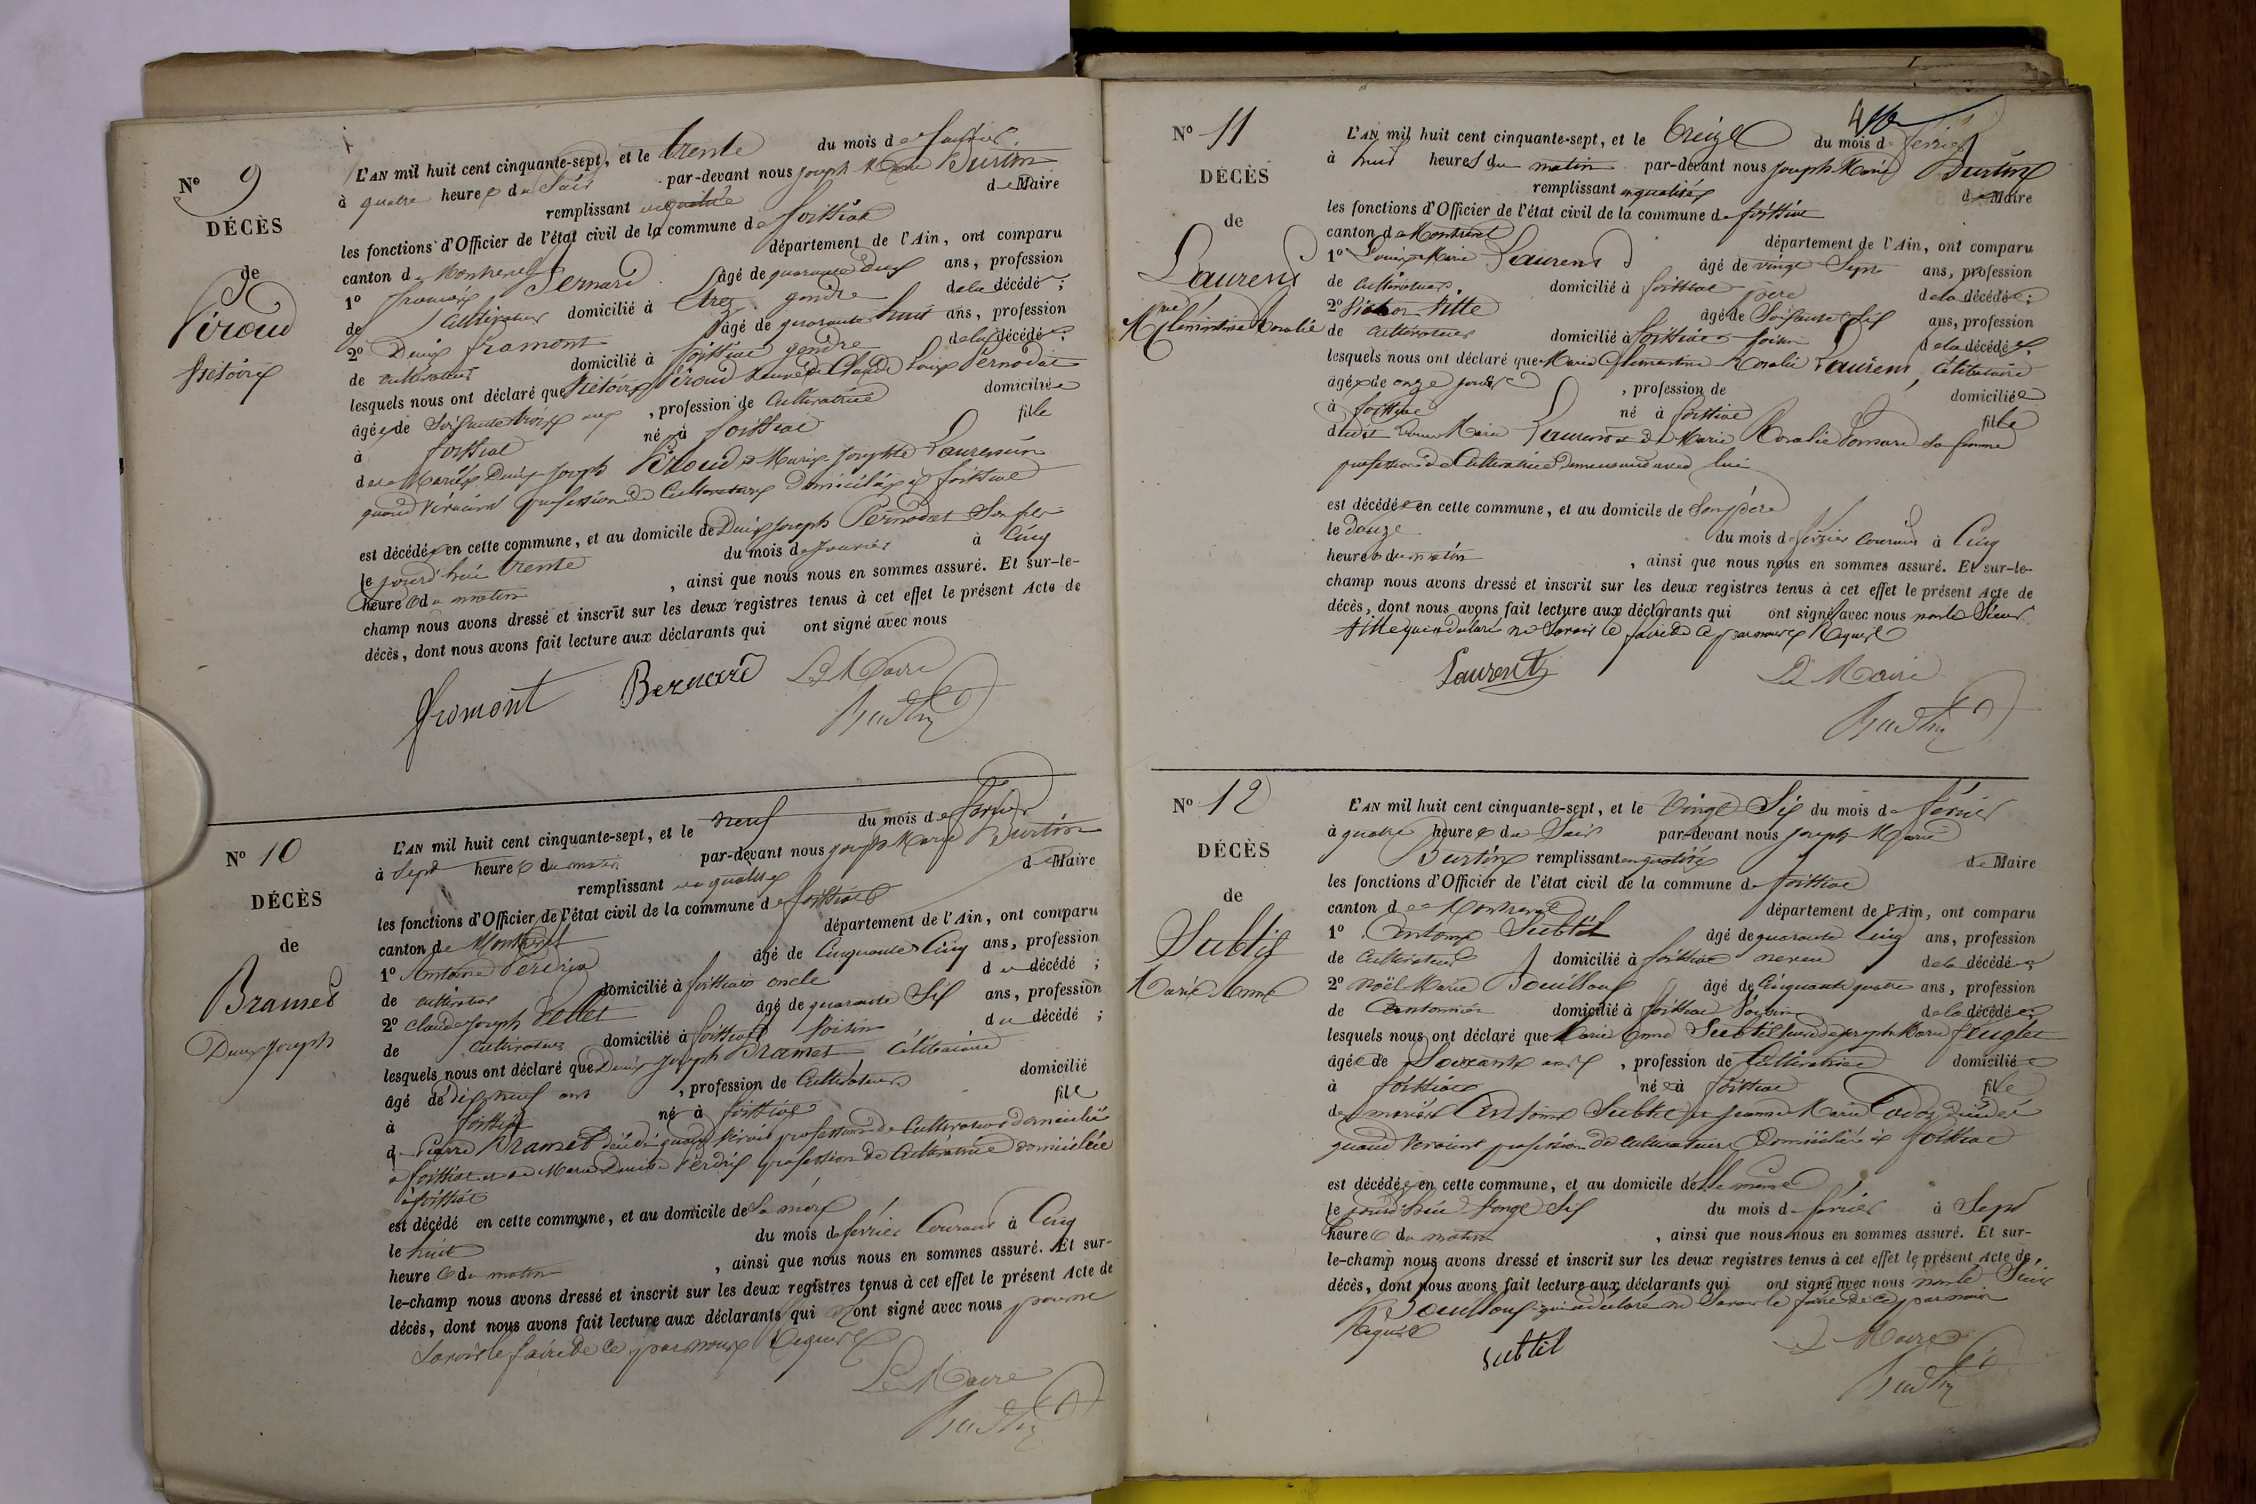 N° 9
DÉCÈS
de
Piroud
Victoire
L'AN mil huit cent cinquante-sept, et le trente du mois de Janvier
à quatre heures du Soir par-devant nous joseph Marie Burtin
remplissant en qualité de Maire
les fonctions d'Officier de l'état civil de la commune de foissiat
canton de Montrevel département de l'Ain, ont comparu
1° françois Bernard âgé de quarante deux ans, profession
de Cultivateur domicilié à Etrez gendre de la décédé ;
2° Denis fromont âgé de quarante huit ans, profession
de cultivateur domicilié à foissiat gendre de la décédé
lesquels nous ont déclaré que Victoire Piroud veuve de Claude Louis Pernodat
âgée de Soixante trois ans, profession de Cultivatrice domiciliée
à foissiat né à foissiat fille
de Mariés Denis Joseph Piroud et Marie Josephte Laurencin
quand vivaient profession de Cultivateurs domiciliés à foissiat
est décédée en cette commune, et au domicile de Denis Joseph Pernodat Son fils
le jourd'hui trente du mois de janvier à Cinq
heures du matin, ainsi que nous nous en sommes assuré. Et sur-le-
champ nous avons dressé et inscrit sur les deux registres tenus à cet effet le présent Acte de
décès, dont nous avons fait lecture aux déclarants qui ont signé avec nous
fromont Bernard Le Maire
Burtin
N° 10
DÉCÈS
de
Bramet
Denis Joseph
L'AN mil huit cent cinquante-sept, et le neuf du mois de février
à Sept heures du matin par-devant nous joseph Marie Burtin
remplissant en qualité de Maire
les fonctions d'Officier de l'état civil de la commune de foissiat
canton de Montrevel département de l'Ain, ont comparu
1° Antoine Perdrix âgé de Cinquante Cinq ans, profession
de cultivateur domicilié à foissiat oncle du décédé ;
2° Claude Joseph Vellet âgé de quarante Six ans, profession
de Cultivateur domicilié à foissiat Voisin du décédé ;
lesquels nous ont déclaré que Denis Joseph Bramet Célibataire
âgé de dix neuf ans, profession de Cultivateur domicilié
à foissiat né à foissiat fils
de Pierre Bramet décédé quand vivait profession de Cultivateur domicilié
à foissiat et de Marie Denise Perdrix profession de Cultivatrice domiciliée
à foissiat
est décédé en cette commune, et au domicile de Sa mère
le huit du mois de février Courant à Cinq
heures du matin, ainsi que nous nous en sommes assuré. Et sur-
le-champ nous avons dressé et inscrit sur les deux registres tenus à cet effet le présent Acte de
décès, dont nous avons fait lecture aux déclarants qui n'ont signé avec nous pour ne
Savoir le faire de ce par nous Requis
Le Maire
Burtin
N° 11
DÉCÈS
de
Laurent
Mie Clémentine Rosalie
L'AN mil huit cent cinquante-sept, et le treize du mois de février
à huit heures du matin par-devant nous joseph Marie Burtin
remplissant en qualité de Maire
les fonctions d'Officier de l'état civil de la commune de foissiat
canton de Montrevel département de l'Ain, ont comparu
1° Louis Marie Laurent âgé de vingt Sept ans, profession
de Cultivateur domicilié à foissiat père de la décédée ;
2° Victor Titte âgé de Soixante Six ans, profession
de Cultivateur domicilié à foissiat Voisin de la décédée.
lesquels nous ont déclaré que Marie Clémentine Rosalie Laurent, Célibataire
âgée de onze jours, profession de domiciliée
à foissiat né à foissiat fille
dudit Louis Marie Laurent et de Marie Rosalie sa femme
profession de Cultivatrice demeurant avec lui
est décédée en cette commune, et au domicile de Son père
le douze du mois de février Courant à Cinq
heures du matin, ainsi que nous nous en sommes assuré. Et sur-le-
champ nous avons dressé et inscrit sur les deux registres tenus à cet effet le présent Acte de
décès, dont nous avons fait lecture aux déclarants qui ont signé avec nous non le Sieur
Titte qui a déclaré ne Savoir le faire de ce par nous Requis
Laurent Le Maire
Burtin
N° 12
DÉCÈS
de
Subtil
Marie Anne
L'AN mil huit cent cinquante-sept, et le Vingt Six du mois de février
à quatre heures du Soir par-devant nous joseph Marie
Burtin remplissant en qualité de Maire
les fonctions d'Officier de l'état civil de la commune de foissiat
canton de Montrevel département de l'Ain, ont comparu
1° Antoine Subtil âgé de quarante Cinq ans, profession
de Cultivateur domicilié à foissiat neveu de la décédée
2° Noël Marie Bouilloux âgé de Cinquante quatre ans, profession
de Cantonnier domicilié à foissiat Voisin de la décédée
lesquels nous ont déclaré que Marie Anne Subtil veuve de joseph Marie feuglet
âgée de Soixante ans, profession de Cultivatrice domiciliée
à foissiat née à foissiat fille
de mariés Antoine Subtil et jeanne Marie décédés
quand vivaient profession de Cultivateurs Domiciliés à foissiat
est décédée en cette commune, et au domicile d'elle même
le jourd'hui Vingt Six du mois de février à Sept
heures du matin, ainsi que nous nous en sommes assuré. Et sur-
le-champ nous avons dressé et inscrit sur les deux registres tenus à cet effet le présent Acte de
décès, dont nous avons fait lecture aux déclarants qui ont signé avec nous non le Sieur
Bouilloux qui a déclaré ne Savoir le faire de ce par nous
Requis
subtil Le Maire
Burtin